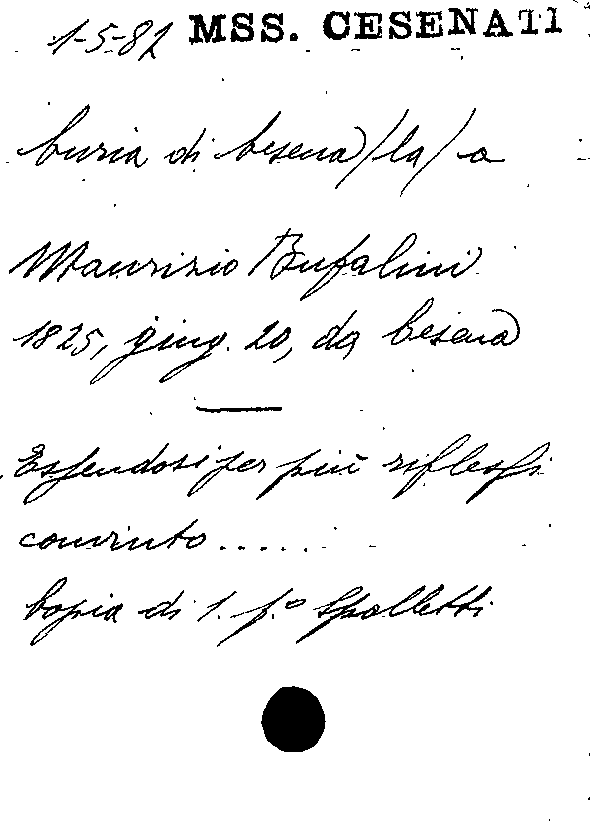 1-5-82 MSS. CESENATI
Curia di Cesena /la/ a
Maurizio Bufalini
1825, giug. 20, da Cesena
Essendosi per più riflessi
convinto.....
Copia di 1. p.º Spalletti